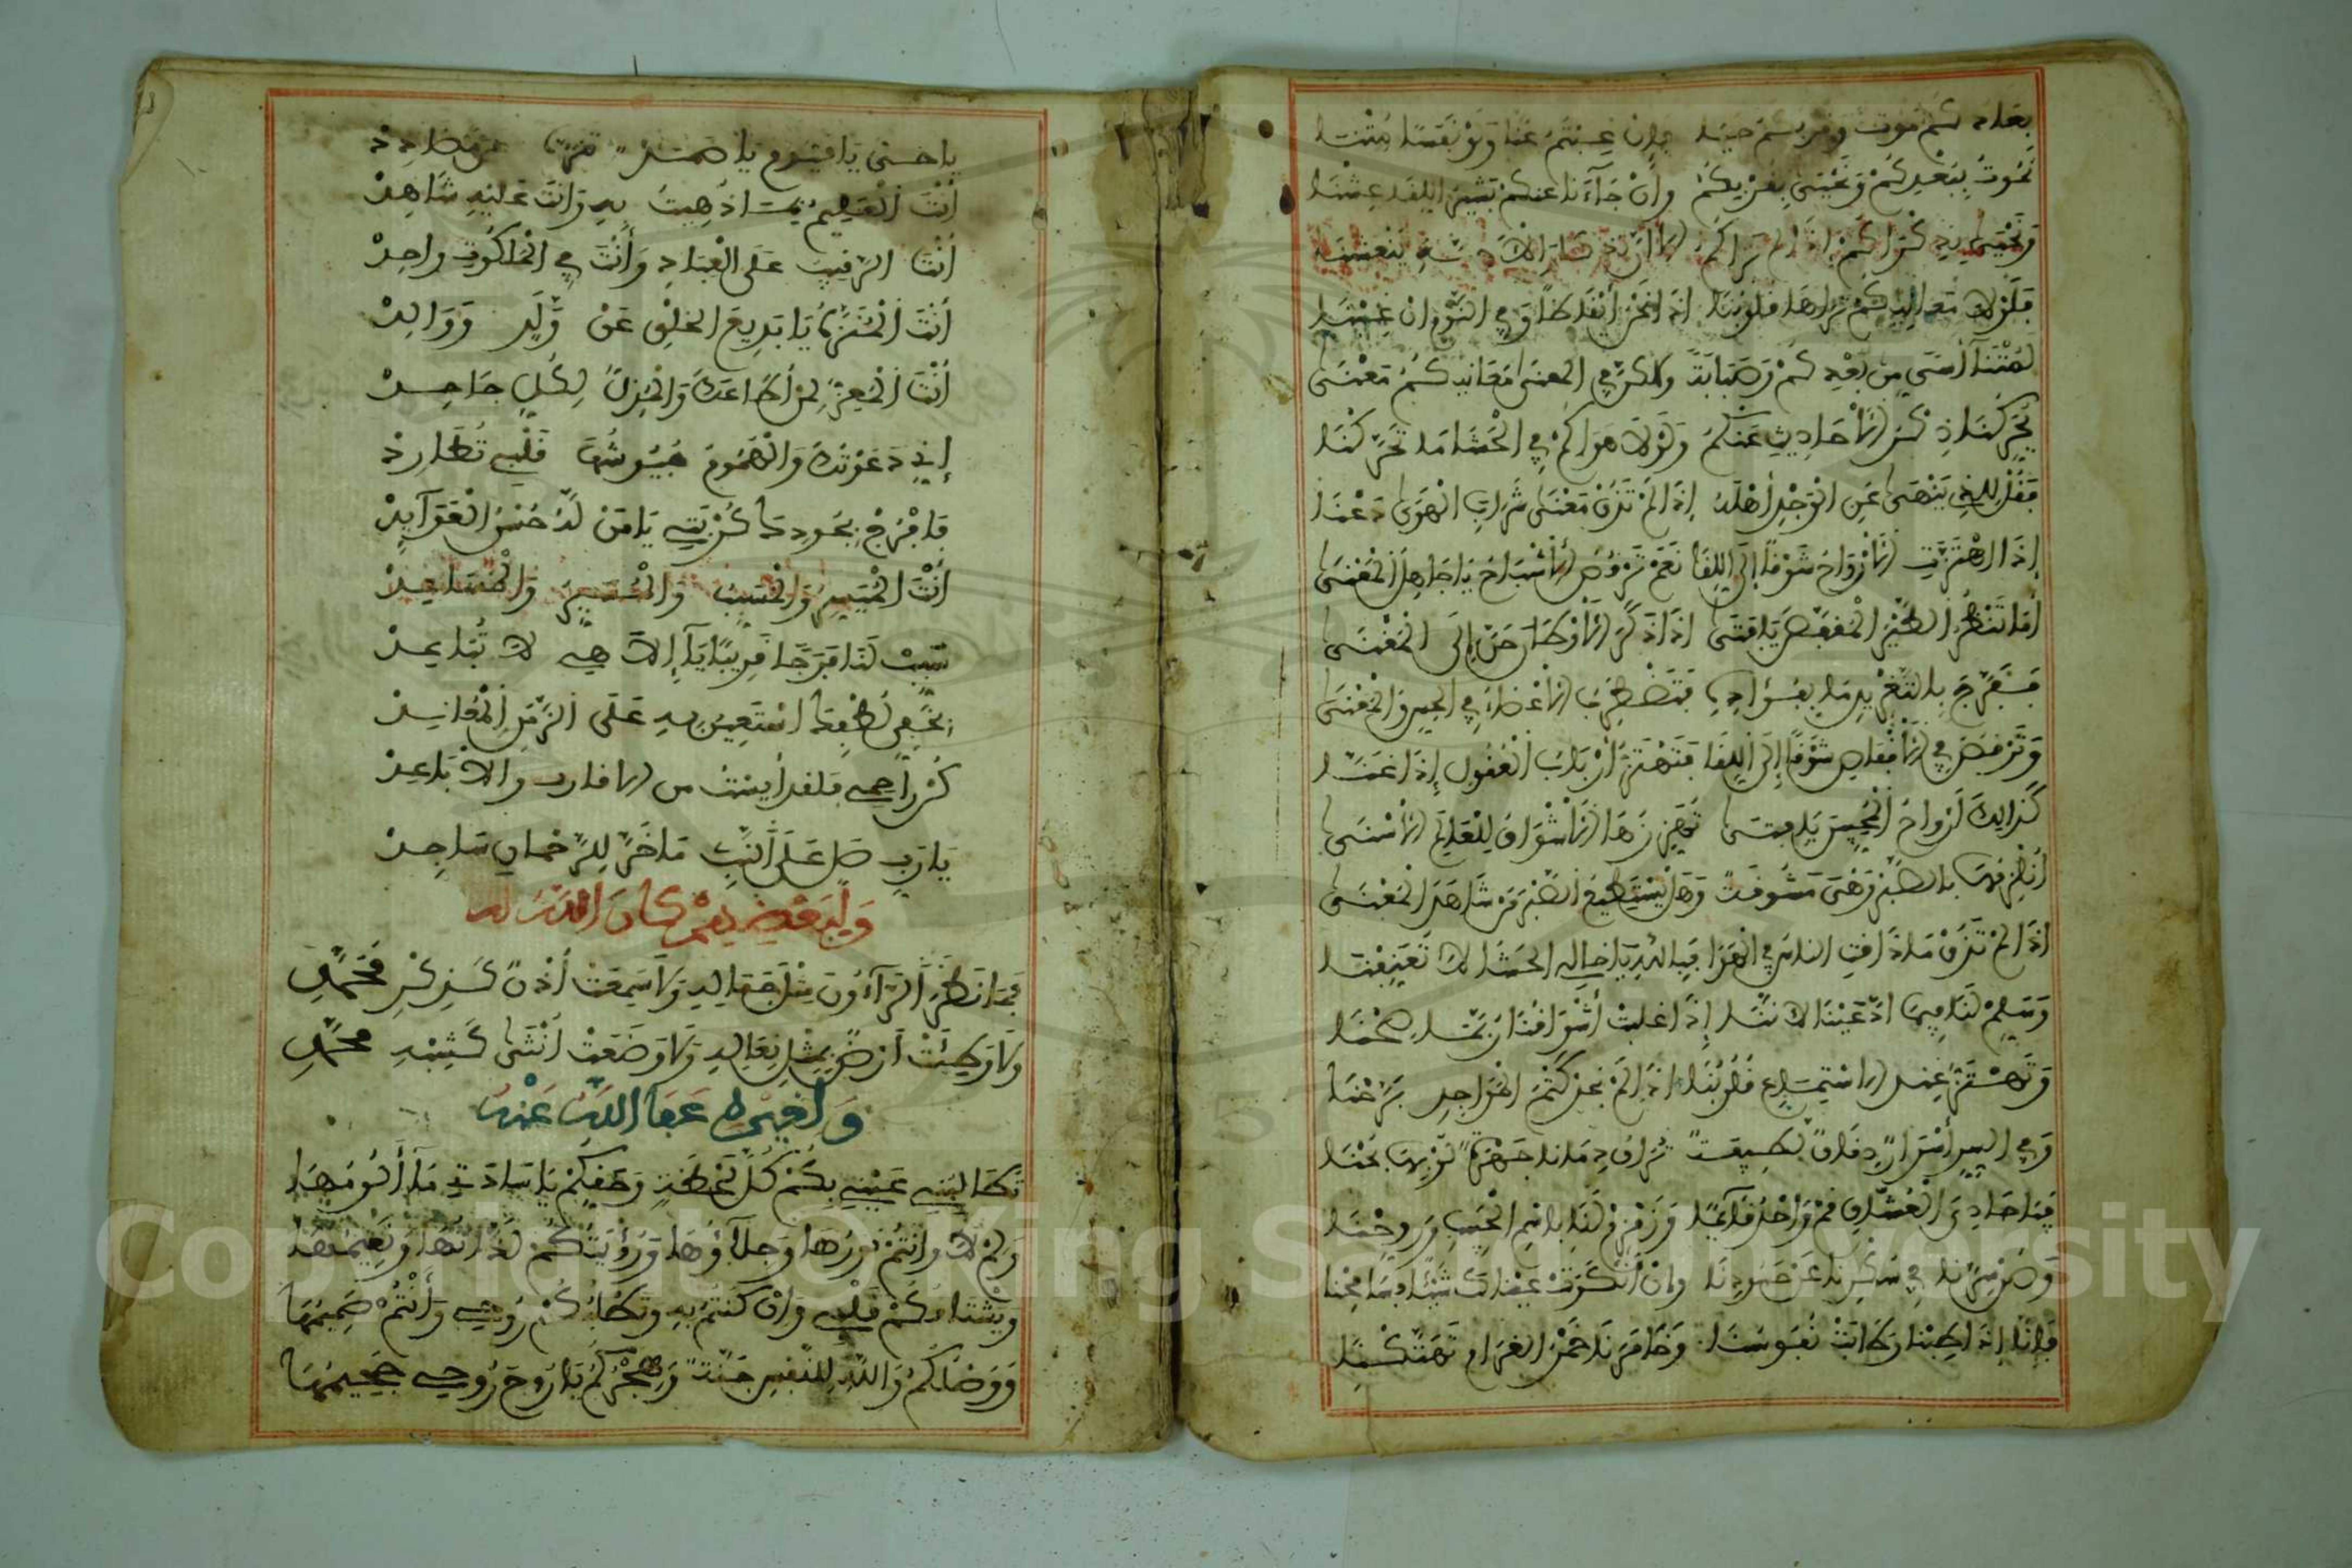 بعادكم موت وقربكم حيا وإن غبتم عنا ولو نفسا متنا
نموت ببعدكم ونحيى بقربكم وإن جاءنا عنكم بشير اللقا عشنا
ونحيى بذكراكم إذا لم نراكم
فلولا معانيكم تراها قلوبنا إذا نحن أيقاظا وفي النوم إن غبنا
لمتنا أسى من بعدكم وصبابة ولكن في المعنى معانيكم معنى
يحركنا ذكر الأحاديث عنكم ولولا هواكم في الحشا ما تحركنا
فقل للذي ينهى عن الوجد أهله إذا لم تذق معنى شراب الهوى دعنا
إذا اهتزت الأرواح شوقا إلى اللقا نعم ترقص الأشباح يا جاهل المعنى
أما تنظر الطير المقفص يا فتى إذا ذكر الأوطان حن إلى المغنى
ففرج بالتغريد ما بفؤاده فتضطرب الأعضاء في الحس والمعنى
وترقص في الأقفاص شوقا إلى اللقا فتهتز أرباب العقول إذا غنا
كذلك أرواح المحبين يا فتى تهززها الأشواق للعالم الأسنى
أنلزمها بالصبر وهي مشوقة وهل يستطيع الصبر من شاهد المعنى
إذا لم تذق ما ذاقت الناس في الهوى فبالله يا خالي الحشا لا تعنفنا
وسلم لنا فيما ادعينا لأننا إذا غلبت أشواقنا ربما صحنا
وتهتز عند الاستماع قلوبنا إذا لم نجد كتم المواجد برحنا
وفي السر أسرار دقاق لطيفة تراق دمانا جهرة لو بها بحنا
فيا حادي العشاق قم واحد قائما وزمزم لنا باسم الحبيب وروحنا
وصن سرنا في سكرنا عن حسودنا وإن أنكرت عيناك شيئا فسامحنا
فإنا إذا طبنا وطابت نفوسنا وخامرنا خمر الغرام تهتكنا
يا حي يا قيوم يا صمد تنزه عن مضادد
أنت العليم بما ذهبت به وأنت عليه شاهد
أنت الرقيب على العباد وأنت في الملكوت واحد
أنت المنزه يا بديع الخلق عن ولد ووالد
أنت المعز لمن أطاعك والمذل لكل جاحد
إني دعوتك والهموم جيوشها قلبي تطارد
فافرج بحودك كربتي يا من له حسن العوائد
أنت الميسر والمسبب والمسير والمساعد
سبب لنا فرجا قريبا يا إلاهي لا تباعد
بخفي لطفك أستعين به على الزمن المعاند
كن راحمي فلقد أيست من الاقارب والاباعد
يا رب صل على النبي ما خر للرحمان ساجد
ولبعضهم كان الله له
فما نظر الراءون مثل جماله ولا سمعت أذن كذكر محمد
ولا وطئت أرض بمثل نعاله ولا وضعت أنثى كشبه محمد
ولغيره عفا الله عنه
تطالبني عيني بكم كل لحظة وحقكم يا سادتي ما ألومها
ولم لا وأنتم نورها وجلاؤها ورؤيتكم لذاتها ونعيمها
ويشتاقكم قلبي وإن كنتم به وتطلبكم روحي وأنتم صميمها
ووصلكم والله للنفس جنة وهجركم يا روح روحي جحيمها